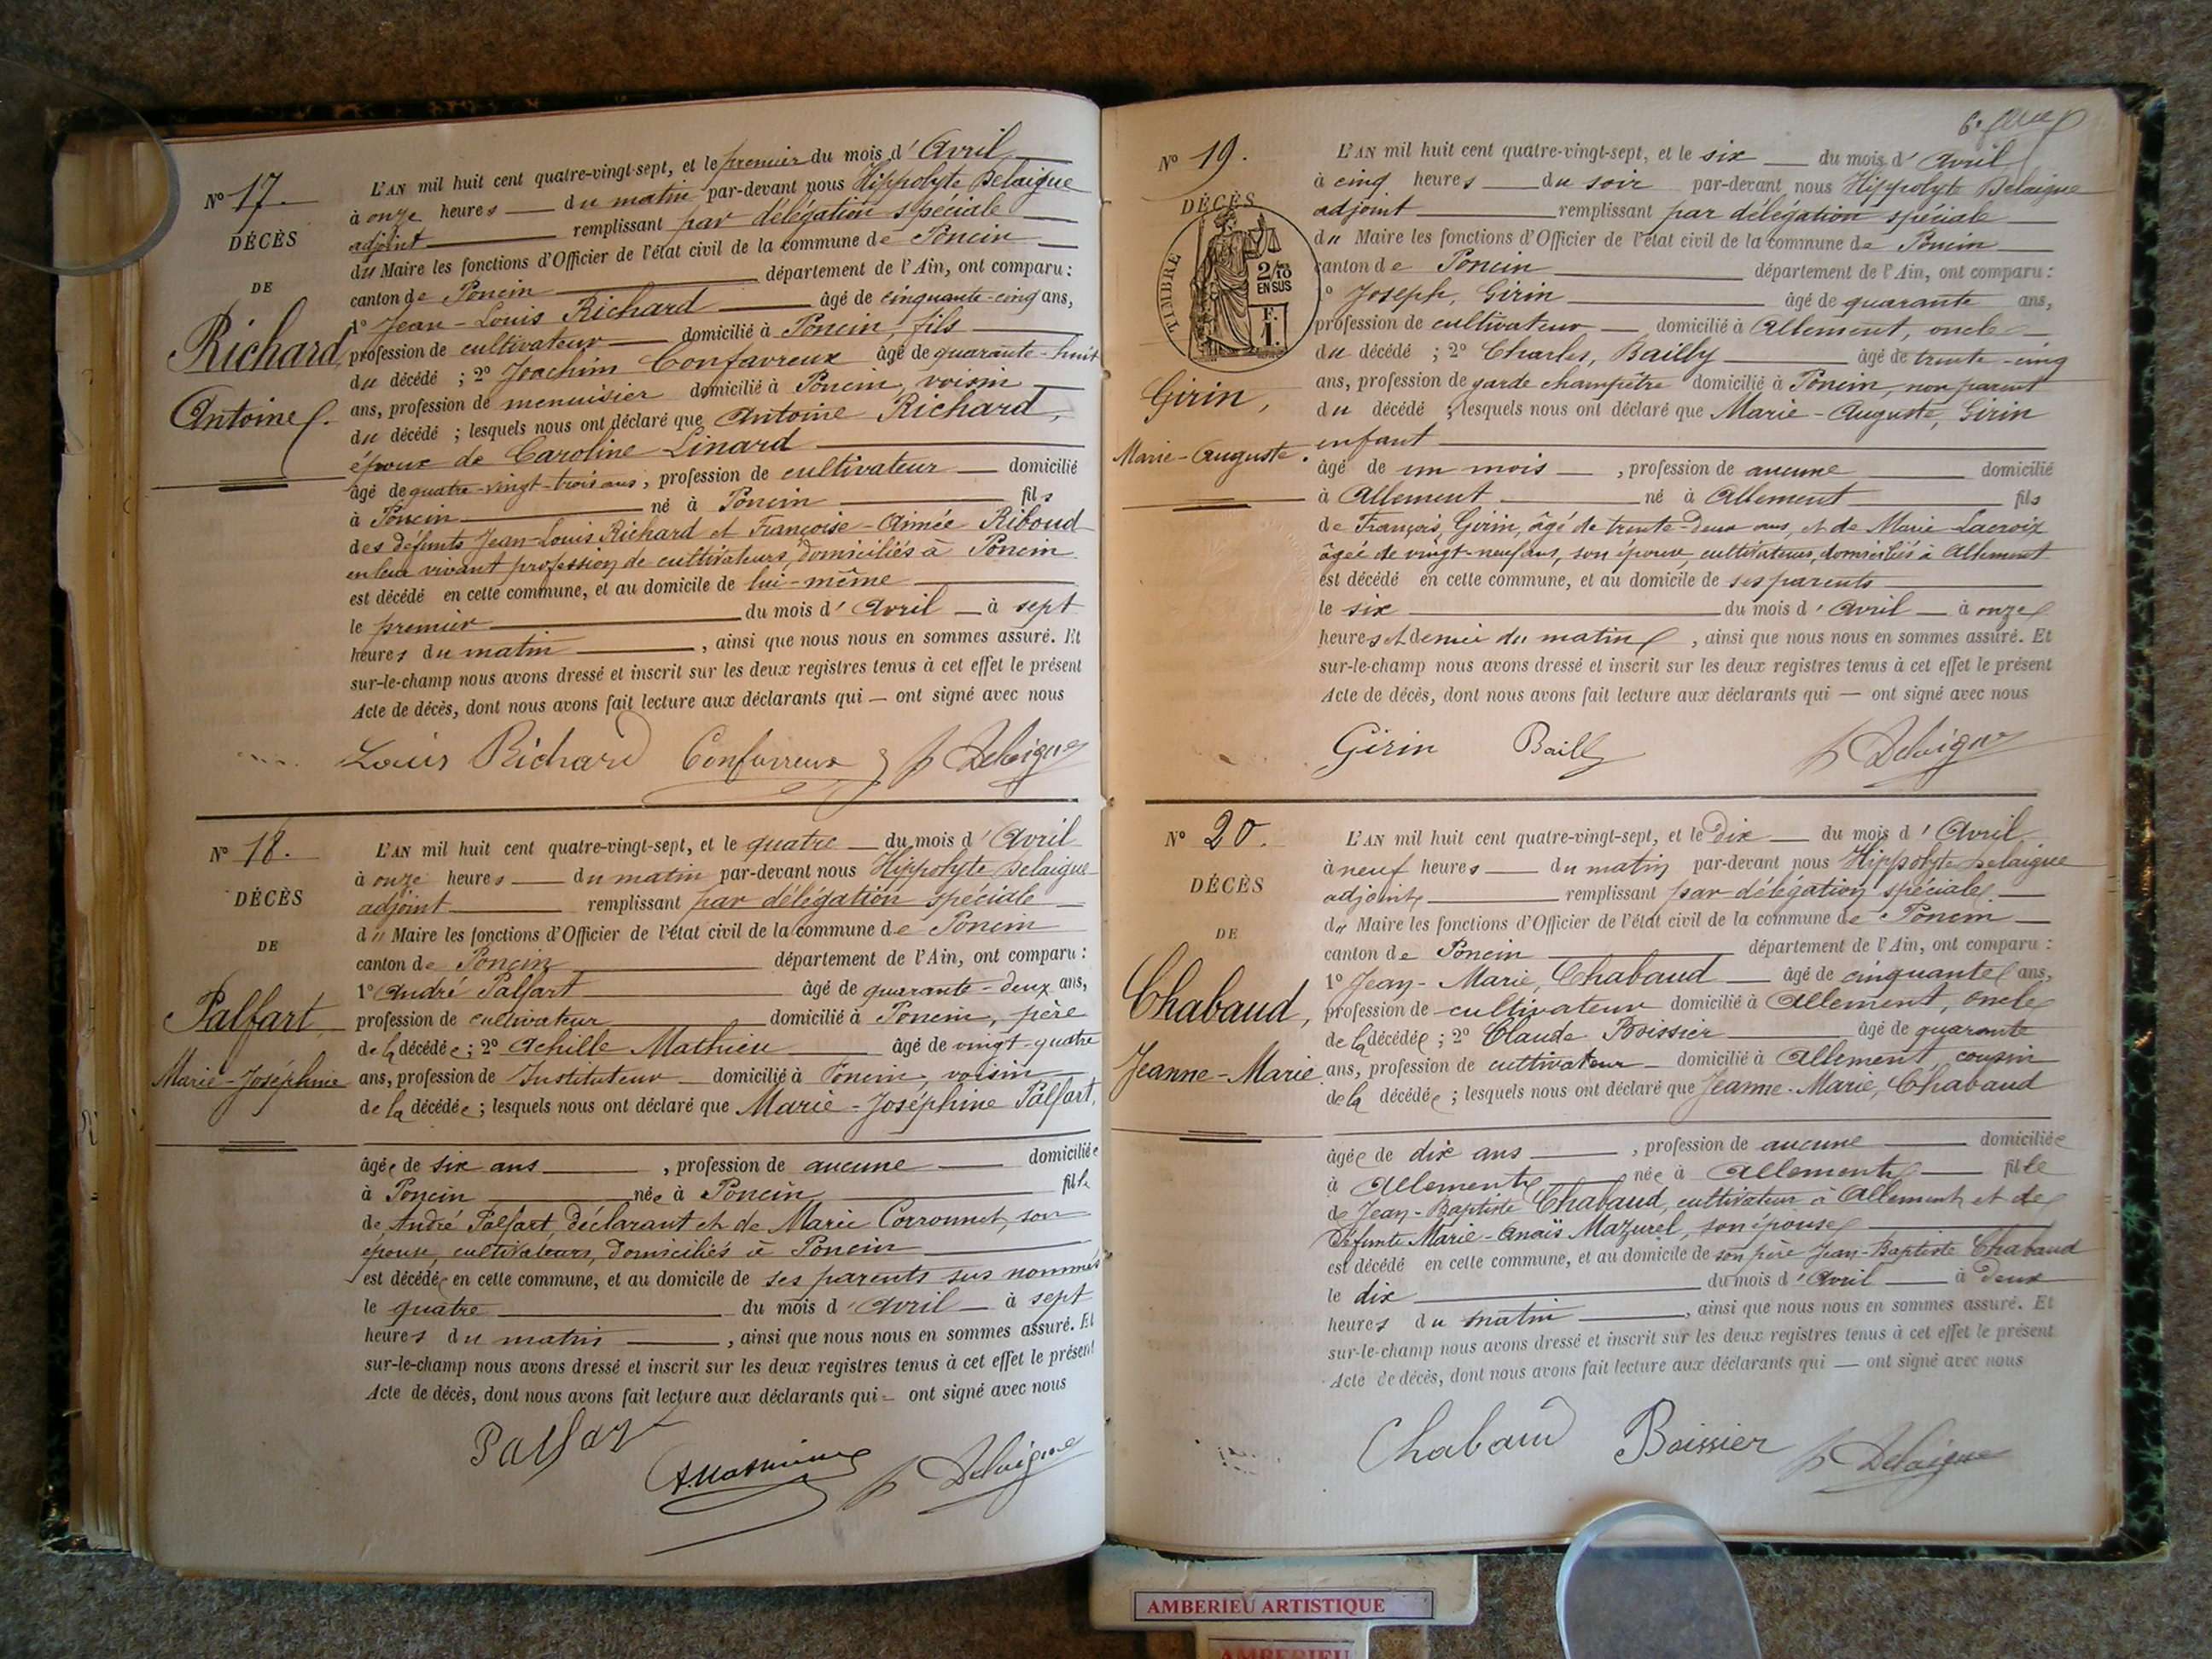 N° 17.
DÉCÈS
DE
Richard,
Antoine.
L'AN mil huit cent quatre-vingt-sept, et le premier du mois d'Avril
à onze heures du matin par-devant nous Hippolyte Delaigue
adjoint remplissant par délégation spéciale
du Maire les fonctions d'Officier de l'état civil de la commune de Poncin
canton de Poncin département de l'Ain, ont comparu :
1° Jean-Louis Richard âgé de cinquante-cinq ans,
profession de cultivateur domicilié à Poncin, fils
du décédé ; 2° Joachim Confavreux âgé de quarante-huit
ans, profession de menuisier domicilié à Poncin, voisin
du décédé ; lesquels nous ont déclaré que Antoine Richard,
époux de Caroline Linard
âgé de quatre-vingt-trois ans, profession de cultivateur domicilié
à Poncin né à Poncin fils
des défunts Jean-Louis Richard et Françoise-Aimée Riboud
en leur vivant profession de cultivateurs, domiciliés à Poncin
est décédé en cette commune, et au domicile de lui-même
le premier du mois d'Avril à sept
heures du matin , ainsi que nous nous en sommes assuré. Et
sur-le-champ nous avons dressé et inscrit sur les deux registres tenus à cet effet le présent
Acte de décès, dont nous avons fait lecture aux déclarants qui — ont signé avec nous
Louis Richard Confavreux h Delaigue
N° 18.
DÉCÈS
DE
Palfart,
Marie-Joséphine
L'AN mil huit cent quatre-vingt-sept, et le quatre du mois d'Avril
à onze heures du matin par-devant nous Hippolyte Delaigue
adjoint remplissant par délégation spéciale
du Maire les fonctions d'Officier de l'état civil de la commune de Poncin
canton de Poncin département de l'Ain, ont comparu :
1° André Palfart âgé de quarante-deux ans,
profession de cultivateur domicilié à Poncin, père
de la décédée ; 2° Achille Mathieu âgé de vingt-quatre
ans, profession de Instituteur domicilié à Poncin, voisin
de la décédée ; lesquels nous ont déclaré que Marie-Joséphine Palfart,
âgée de six ans , profession de aucune domiciliée
à Poncin née à Poncin fille
de André Palfart, déclarant et de Marie son
épouse, cultivateurs, domiciliés à Poncin
est décédée en cette commune, et au domicile de ses parents sus nommés
le quatre du mois d'Avril à sept
heures du matin , ainsi que nous nous en sommes assuré. Et
sur-le-champ nous avons dressé et inscrit sur les deux registres tenus à cet effet le présent
Acte de décès, dont nous avons fait lecture aux déclarants qui — ont signé avec nous
Palfart
h Delaigue
N° 19.
DÉCÈS
TIMBRE
2/10
EN SUS
F.
1.
Girin,
Marie-Auguste.
L'AN mil huit cent quatre-vingt-sept, et le six du mois d'Avril
à cinq heures du soir par-devant nous Hippolyte Delaigue
adjoint remplissant par délégation spéciale
du Maire les fonctions d'Officier de l'état civil de la commune de Poncin
canton de Poncin département de l'Ain, ont comparu :
° Joseph, Girin âgé de quarante ans,
profession de cultivateur domicilié à Allement, oncle
du décédé ; 2° Charles, Bailly âgé de trente-cinq
ans, profession de garde champêtre domicilié à Poncin, non parent
du décédé ; lesquels nous ont déclaré que Marie-Auguste, Girin
enfant
âgé de un mois , profession de aucune domicilié
à Allement né à Allement fils
de François, Girin, âgé de trente-deux ans, et de Marie Lacroix
âgée de vingt-neuf ans, son épouse, cultivateurs, domiciliés à Allement
est décédé en cette commune, et au domicile de ses parents
le six du mois d'Avril à onze
heures et demie du matin , ainsi que nous nous en sommes assuré. Et
sur-le-champ nous avons dressé et inscrit sur les deux registres tenus à cet effet le présent
Acte de décès, dont nous avons fait lecture aux déclarants qui — ont signé avec nous
Girin Bailly h Delaigue
N° 20.
DÉCÈS
DE
Chabaud,
Jeanne-Marie.
L'AN mil huit cent quatre-vingt-sept, et le Dix du mois d'Avril
à neuf heures du matin par-devant nous Hippolyte Delaigue
adjoint remplissant par délégation spéciale
du Maire les fonctions d'Officier de l'état civil de la commune de Poncin
canton de Poncin département de l'Ain, ont comparu :
1° Jean-Marie, Chabaud âgé de cinquante ans,
profession de cultivateur domicilié à Allement, oncle
de la décédée ; 2° Claude Boissier âgé de quarante
ans, profession de cultivateur domicilié à Allement, cousin
de la décédée ; lesquels nous ont déclaré que Jeanne-Marie, Chabaud
âgée de dix ans , profession de aucune domiciliée
à Allement née à Allement fille
de Jean-Baptiste Chabaud, cultivateur à Allement et de
défunte Marie-Anaïs Mazurel, son épouse
est décédé en cette commune, et au domicile de son père Jean-Baptiste Chabaud
le dix du mois d'Avril à deux
heures du matin , ainsi que nous nous en sommes assuré. Et
sur-le-champ nous avons dressé et inscrit sur les deux registres tenus à cet effet le présent
Acte de décès, dont nous avons fait lecture aux déclarants qui — ont signé avec nous
Chabaud Boissier h Delaigue
AMBERIEU ARTISTIQUE
AMBERIEU